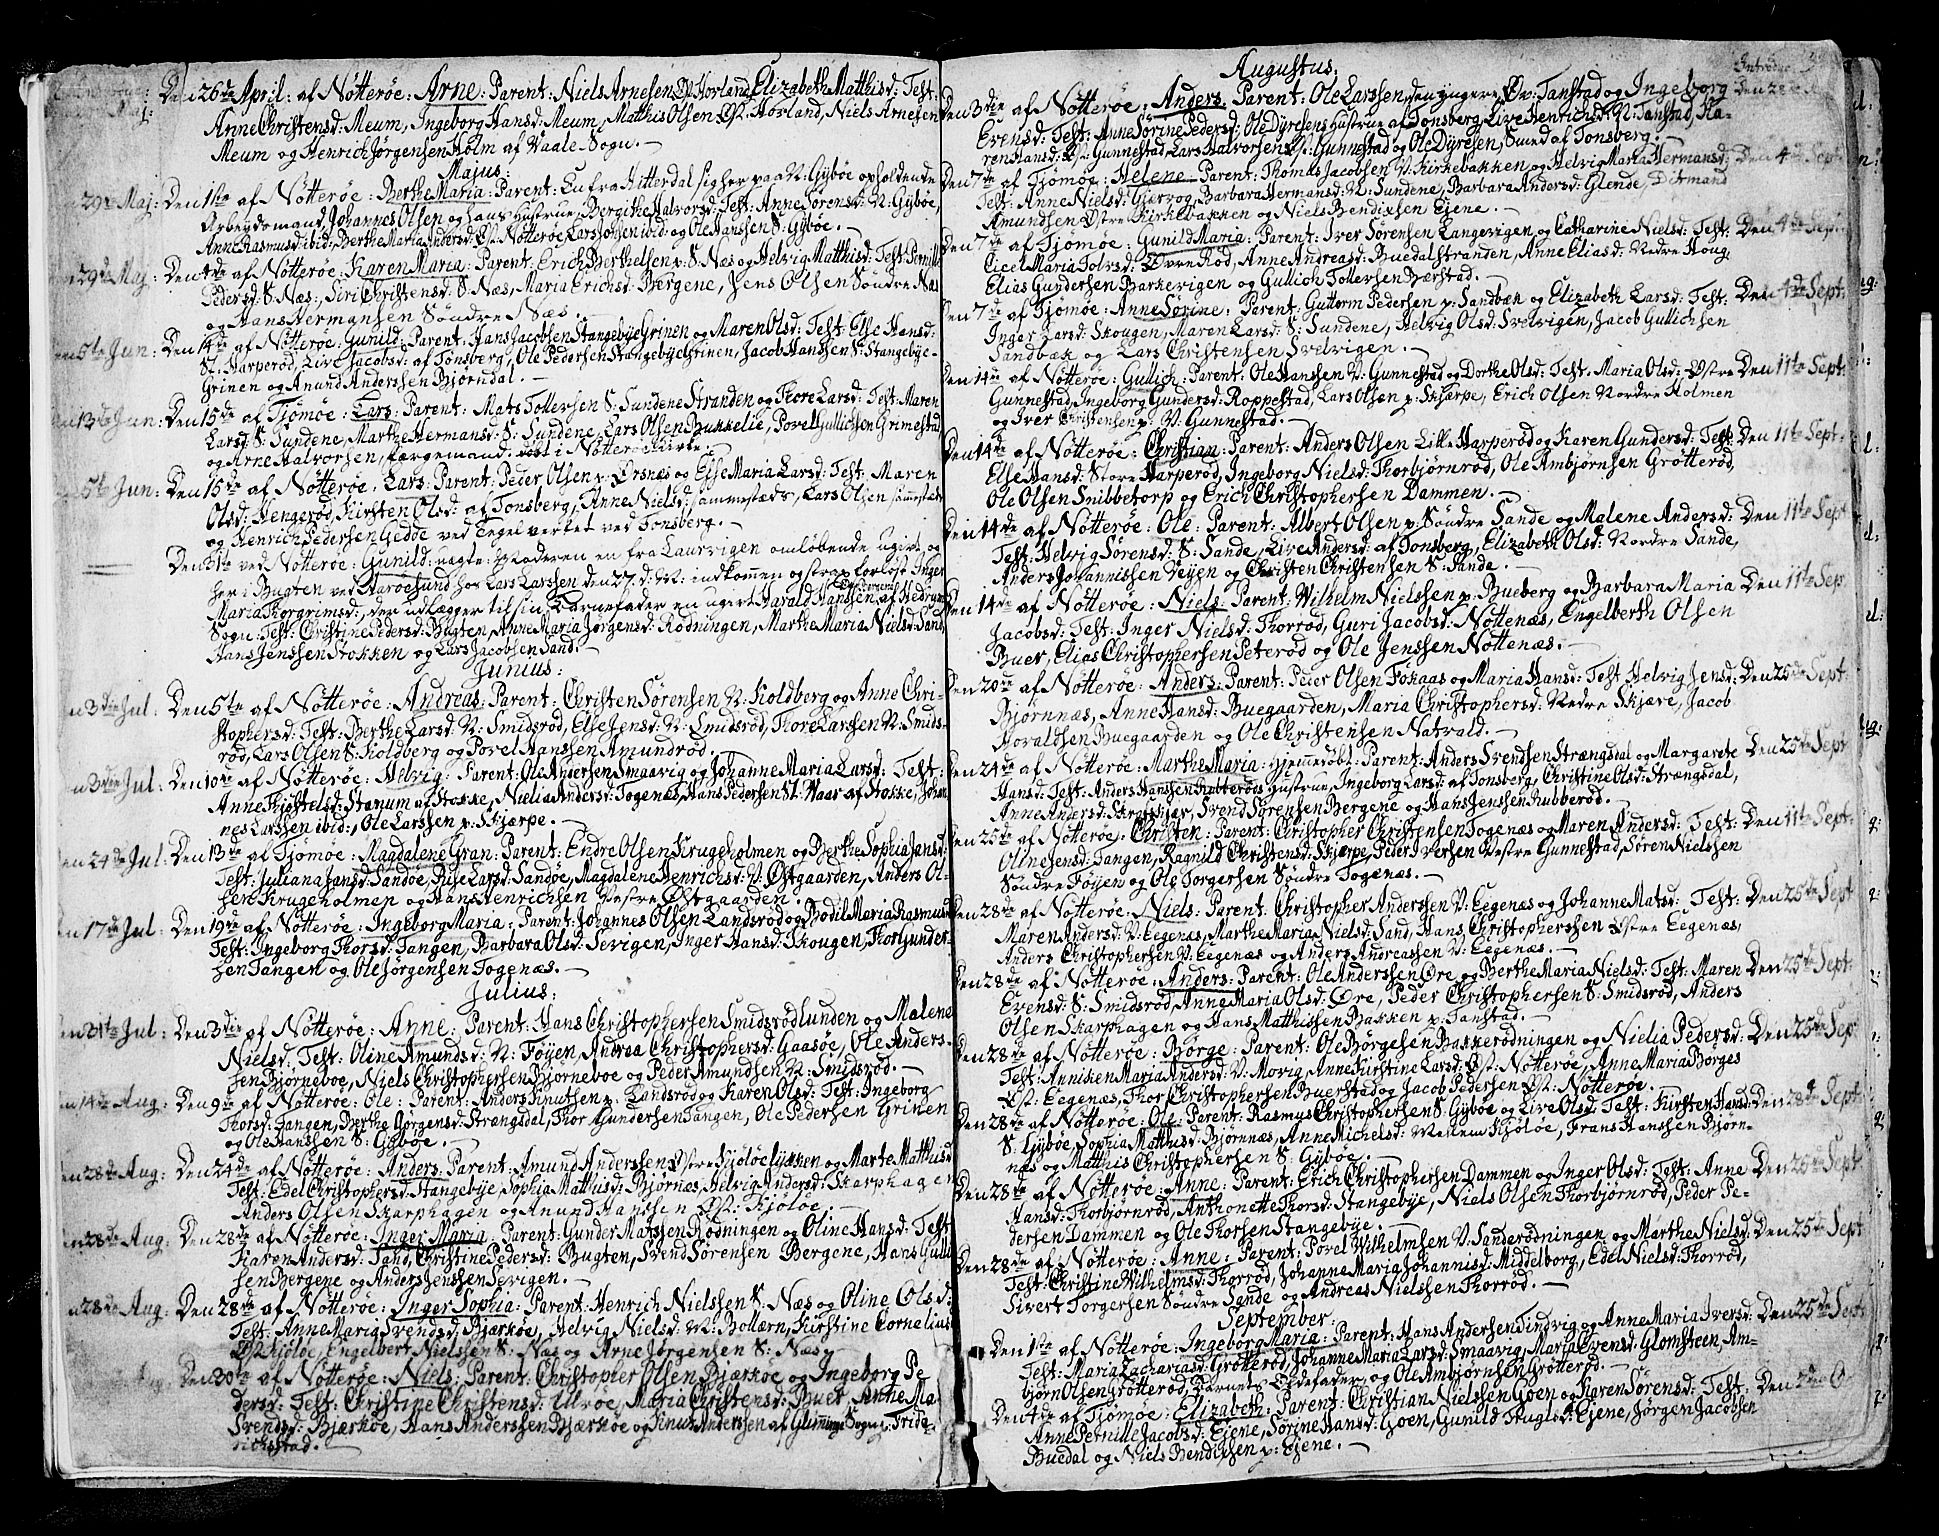 Den 26de April: af Nøtterøe: Arne: Parent: Niels Arnesen Øst Horland, Elizabeth Matthisd: Test:
Maj: Anne Christensd: Meum, Ingeborg Hansd: Meum, Matthis Olsen Øst: Horland, Niels Arnesen
Meum og Henrich Jørgensen Holm af Vaale Sogn. —
Majus:
29de Maj: Den 1ste af Nøtterøe: Berthe Maria: Parent: En fra Hitterdal sig her paa N: Gyböe opholdende
Arbeydsmand Johannes Olsen og hans Hustrue, Bergithe Halvorsd: Test: Anne Sørensd: N: Gyböe,
Anne Rasmusd: ibid: Berthe Maria Andersd: Øst: Nøtterøe Lars Johsen ibid: og Ole Hanssen S: Gyböe. —
29de Maj: Den 4de af Nøtterøe: Karen Maria: Parent: Erich Berthelsen p: S: Næs og Helvig Matthisd: Test: Pernille
Pedersd: S: Næs:, Siri Christensd: S: Næs, Maria Erichsd: Bergene, Jens Olsen Søndre Næs
og Hans Hermansen Søndre Næs. —
5te Jun: Den 14de af Nøtterøe: Gunild: Parent: Hans Jacobsen Stangebye Grinen og Maren Olsd: Test: Else Hansd:
St: Harperød, Live Jacobsd: af Tonsberg, Ole Pedersen Stangebye stinen, Jacob Hanssen S: Stangebye-
Grinen og Anund Anderssen Bjørndal. —
13de Jun: Den 15de af Tjømøe: Lars: Parent: Mats Tollersen S: Sundene Stranden og Thore Larsd: Test: Maren
Larsd: S: Sundene, Marthe Hermansd: S: Sundene, Lars Olsen Bukkelie, Povel Gullichsen Grimestad
og Arne Halvorsen, færgemand. døbt i Nøtterøe Kirke. —
5te Jun: Den 15de af Nøtterøe: Lars: Parent: Peder Olsen p: Ørsnæs og Else Maria Larsd: Test: Maren
Olsd: Hengerød, Kirsten Olsd: af Tonsberg, Anne Nielsd: sammesteds, Lars Olsen sammesteds
og Henrich Pedersen Gedde ved Tegelverket ved Tonsberg. —
Den 31te ved Nøtterøe: Gunild: uægte: Moderen en fra Laurvigen omløbende ugivt, og
her i Bugten ved Aarøesund hos Lars Larssen den 27. d: M: indkommen og strax forløst Inger
Maria Thorgrimsd:, der udlægger til sin Barnefader en ugivt Harald Hanssen af Hedrum
Sogn: Test: Christine Pedersd: Bugten, Anne Maria Jørgensd: Rødningen, Marthe Maria Nielsd: Sand,
Hans Jenssen Stokken og Lars Jacobsen Sand. —
Junius:
3die Jul: Den 5te af Nøtterøe: Andreas: Parent: Christen Sørensen N: Holdberg og Anne Chri-
stophersd: Test: Berthe Larsd: N: Smidsrød, Else Jensd: N: Smidsrød, Thore Larssen N: Smids-
rød, Lars Olsen S: Holdberg og Povel Hanssen Amundrød.
3die Jul: Den 10de af Nøtterøe: Helvig: Parent: Ole Andersen Smaavig og Johanne Maria Larsd: Test:
Anne Kjøstelsd: Stanum af Stokke, Nielia Andersd: Togenæs, Hans Pedersen St: Waar af Stokke, Johan-
nes Larssen ibid:, Ole Larssen p: Skjærpe. —
24de Jul: Den 13de af Tjømøe: Magdalene Gran: Parent: Endre Olsen Krugeholmen og Berthe Sophia Jansd:
Test: Juliana Jansd: Sandøe, Else Larsd: Sandøe, Magdalene Henrichsd: V: Østgaarden, Anders Ol-
sen Krugeholmen og Hans Henrichsen Vestre Østgaarden.
17de Jul: Den 19de af Nøtterøe: Ingeborg Maria: Parent: Johannes Olsen Landsrød og Bodil Maria Rasmusd:
Test: Ingeborg Thorsd: Tangen, Barbara Olsd: Sevigen, Inger Hansd: Skougen, Thor Gunder-
sen Tangen og Ole Jørgensen Togenæs. —
Julius:
31te Jul: Den 3die af Nøtterøe: Anne: Parent: Hans Christophersen Smidsrødlunden og Malene
Nielsd: Test: Oline Amundsd: N: Føyen, Andrea Christophersd: Gaasøe, Ole Anders-
sen Bjørneboe, Niels Christophersen Bjørneboe og Peder Amundsen N: Smidsrød. —
14de Aug: Den 9de af Nøtterøe: Ole: Parent: Anders Knutsen p: Landsrød og Karen Olsd: Test: Ingeborg
Thorsd: Tangen, Berthe Jørgensd: Strengsdal, Thor Gundersen Tangen, Ole Pedersen Grinen
og Ole Hanssen S: Gyböe. —
28de Aug: Den 24de af Nøtterøe: Anders: Parent: Amund Anderssen Østre Kjøløelykken og Marte Matthisd:
Test: Edel Christophersd: Stangebye, Sophia Matthisd: Bjørnæs, Helvig Andersd: Skarphagen
Anders Olsen Skarphagen og Anund Hanssen Øst: Kjøløe. —
28de Aug: Den 28de af Nøtterøe: Inger Maria: Parent: Gunder Matssen Rødningen og Oline Hansd: Test:
Karen Andersd: Sand, Christine Pedersd: Bugten, Svend Sørensen Bergene, Hans Gullik-
sen Bergene og Anders Jenssen Sevigen. —
28de Aug: Den 28de af Nøtterøe: Inger Sophia: Parent: Henrich Nielssen S: Næs og Oline Olsd:
Test: Anne Maria Svendsd: Bjærkøe, Helvig Nielsd: M: Bollærn, Kirstine Cornelius
Øst Kjøløe, Engelbert Nielssen S: Næs og Arne Jørgensen S: Næs. —
Aug: Den 30te af Nøtterøe: Niels: Parent: Christopher Olsen Bjærkøe og Ingeborg Pe-
dersd: Test: Christine Christensd: Ulvøe, Maria Christensd: Buer, Anne Ma:
Svendsd: Bjærkøe, Hans Anderssen Bjærkøe og Knut Anderssen af Glemmige Sogn: Fride-
richstad. —
Augustus:
Introduc:
Den 3die af Nøtterøe: Anders: Parent: Ole Larssen, den yngere, Øv: Tanstad og Ingeborg Den 28de
Evensd: Test: Anne Sørine Pedersd: Ole Dyresens Hustrue af Tonsberg, Live Henrichsd: N: Tanstad, Ka-
ren Hansd: Øst: Gunnestad, Lars Halvorsen Øst: Gunnestad og Ole Dyresen, Smed af Tonsberg. —
Den 7de af Tjømøe: Helene: Parent: Thomas Jacobsen V: Kirkebakken og Helvig Maria Hermansd: Den 4de Sept:
Test: Anne Nielsd: Gjervog, Barbara Hermansd: N: Sundene, Barbara Andersd: Glende, Ditmand
Amundsen Østre Kirkebakken og Niels Bendixsen Ejene. —
Den 7de af Tjømøe: Gunild Maria: Parent: Iver Sørensen Langevigen og Catharine Nielsd: Test: Den 4de Sept:
Cicel Maria Tolvsd: Øvre Rød, Anne Andreasd: Buedalstranden, Anne Eliasd: Nedre Houg,
Elias Gundersen Barkevigen og Gullich Tollefsen Bærstad. —
Den 7de af Tjømøe: Anne Sørine: Parent: Guttorm Pedersen p: Sandbæk og Elizabeth Larsd: Test: Den 4de Sept:
Inger Larsd: Skougen, Maren Larsd: S: Sundene, Helvig Olsd: Svelvigen, Jacob Gullichsen
Sandbæk og Lars Christensen Svelvigen. —
Den 14de af Nøtterøe: Gullich: Parent: Ole Hanssen V: Gunnestad og Dorthe Olsd: Test: Maria Olsd: Østre Den 11te Sept:
Gunnestad, Ingeborg Gundersd: Roppestad, Lars Olsen p: Skjærpe, Erich Olsen Nordre Holmen
og Iver Christensen p: V: Gunnestad. —
Den 14de af Nøtterøe: Christian: Parent: Anders Olsen Lille Harperød og Karen Gundersd: Test: Den 11te Sept:
Else Hansd: Store Harperød, Ingeborg Nielsd: Thorbjørnrød, Ole Ambjørnsen Grøtterød,
Ole Olsen Snibbetorp og Erich Christophersen Dammen. —
Den 14de af Nøtterøe: Ole: Parent: Albert Olsen p: Søndre Sande og Malene Andersd: Den 11te Sept
Test: Helvig Sørensd: S: Sande, Live Andersd: af Tonsberg, Elizabeth Olsd: Nordre Sande,
Anders Johannissen Vejen og Christen Christensen S: Sande. —
Den 14de af Nøtterøe: Niels: Parent: Wilhelm Nielssen p: Bueberg og Barbara Maria Den 11te Sep
Jacobsd: Test: Inger Nielsd: Thorrød, Guri Jacobsd: Nøttenæs, Engelberth Olsen
Buer, Elias Christophersen Peterød og Ole Jenssen Nøttenæs. —
Den 20de af Nøtterøe: Anders: Parent: Peter Olsen Fokaas og Maria Hansd: Test: Helvig Jensd: Den 25de Sept:
Bjørnnæs, Anne Hansd: Buegaarden, Maria Christophersd: Nedre Skjære, Jacob
Horaldsen Buegaarden og Ole Christensen Natvald. —
Den 24de af Nøtterøe: Marthe Maria: hjemmedøbt: Parent: Anders Svendsen Strængsdal og Margarete Den 25de Sept
Hansd: Test: Anders Hanssen Rubberøds Hustrue, Ingeborg Larsd: af Tonsberg, Christine Olsd: Strængsdal,
Anne Andersd: Skrøsskjær, Svend Sørensen Bergene og Hans Jenssen Hubberød. —
Den 25de af Nøtterøe: Christen: Parent: Christopher Christensen Togenæs og Maren Andersd: Test: Den 11te Sept:
Oline Jensd: Tangen, Ragnild Christensd: Skjærpe, Peder Iversen Vestre Gunnestad, Søren Nielssen
Søndre Føyen og Ole Torgersen Søndre Togenæs. —
Den 28de af Nøtterøe: Niels: Parent: Christopher Anderssen V: Eegenæs og Johanne Matsd: Test: Den 25de Sept
Maren Andersd: V: Eegenæs, Marthe Maria Nielsd: Sand, Hans Christophersen Østre Eegenæs,
Anders Christophersen V: Eegenæs og Anders Andreassen V: Eegenæs. —
Den 28de af Nøtterøe: Anders: Parent: Ole Anderssen Øre og Berthe Maria Nielsd: Test: Maren Den 25de Sept:
Evensd: S: Smidsrød, Anne Maria Olsd: Øre, Peder Christophersen S: Smidsrød, Anders
Olsen Skarphagen og Hans Matthissen Bakken p: Tanstad. —
Den 28de af Nøtterøe: Børge: Parent: Ole Børgesen Bakkerødningen og Nielia Pedersd: Den 25de Sep
Test: Anniken Maria Andersd: V: Movig, Anne Kirstine Larsd: Øst: Nøtterøe, Anne Maria Borges
Øst: Eegenæs, Thor Christophersen Buerstad og Jacob Pedersen Øst: Nøtterøe.
Den 28de af Nøtterøe: Ole: Parent: Rasmus Christophersen S: Gyböe og Live Olsd: Test: Kirsten Hansd: Den 28de Sept
S: Gyböe, Sophia Matthisd: Bjørnæs, Anne Michelsd: Mellem Kjøløe, Frans Hanssen Bjørn-
næs og Matthis Christophersen S: Gyböe. —
Den 28de af Nøtterøe: Anne: Parent: Erich Christophersen Dammen og Inger Olsd: Test: Anne Den 25de Sept
Hansd: Thorbjørnrød, Anthonette Thorsd: Stangebye, Niels Olsen Thorbjørnrød, Peder Pe-
dersen Dammen og Ole Thorsen Stangebye. —
Den 28de af Nøtterøe: Anne: Parent: Povel Wilhelmsen V: Sanderødningen og Marthe Nielsd: Den 25de Sept
Test: Christine Wilhelmsd: Thorrød, Johanne Maria Johannisd: Middelborg, Edel Nielsd: Thorrød,
Sivert Torgersen Søndre Sande og Andreas Nielssen Thorrød. —
September:
Den 1ste af Nøtterøe: Ingeborg Maria: Parent: Hans Andersen Tindvig og Anne Maria Iversd: Den 25de Sept
Test: Maria Zachariasd: Grøtterød, Johanne Maria Larsd: Smaavig, Maria Evensd: Glomsteen, Am-
bjørn Olsen Grøtterød, Barnets Oldefader, og Ole Ambjørnsen Grøtterød. —
Den 4de af Tjømøe: Elizabeth: Parent: Christian Nielssen Goen og Karen Sørensd: Test: Den 2den Oc
Anne Pernille Jacobsd: Ejene, Sørine Hansd: Goen, Gunild Fuglsd: Ejene, Jørgen Jacobsen
Buedal og Niels Bendixsen p: Ejene. —